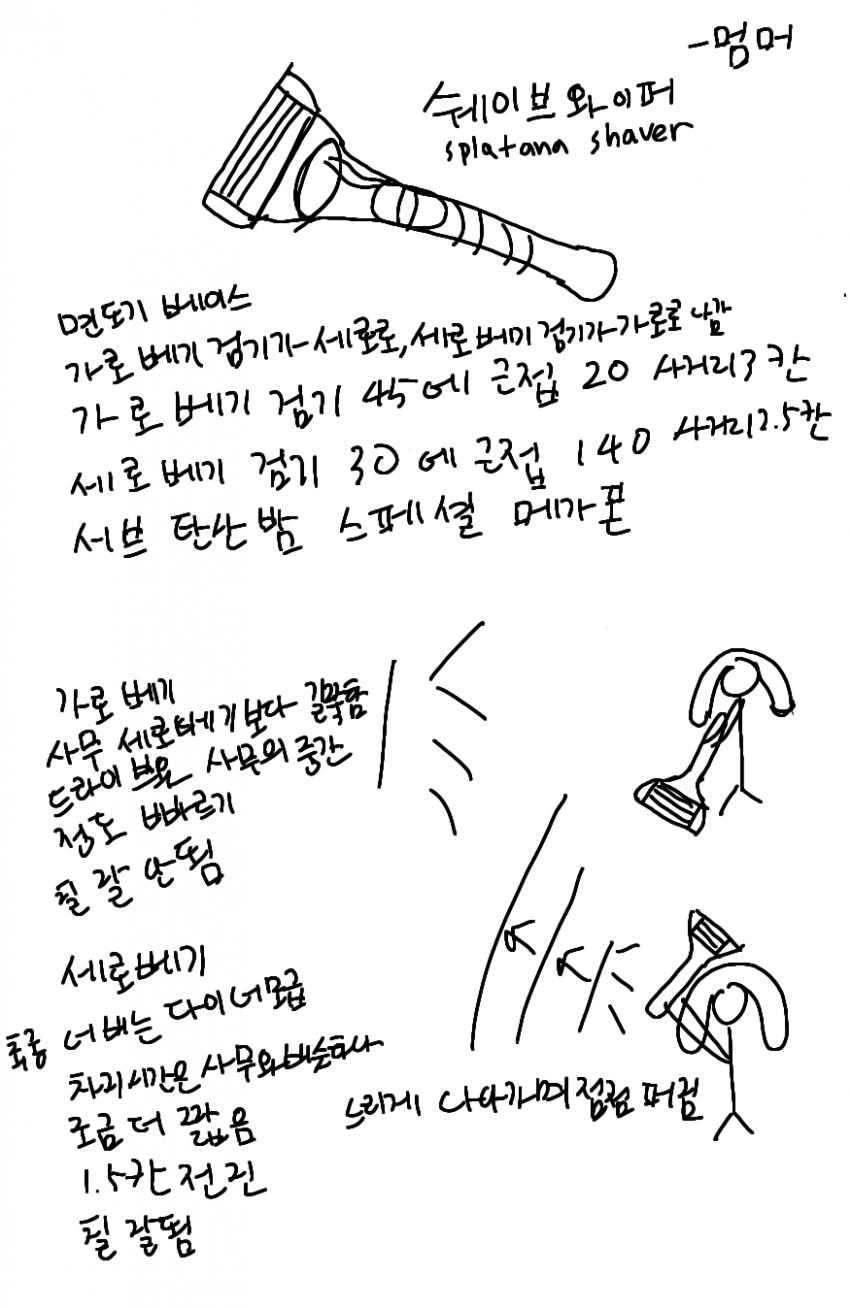 -멈머
쉐이브 와이퍼
splatana shaver
면도기 베이스
가로 베기 검기가 세로로, 세로 베기 검기가 가로로 나감
가로 베기 검기 45에 근접 20 사거리 3칸
세로 베기 검기 30에 근접 140 사거리 2.5칸
서브 탄산밤 스페셜 메가폰
가로 베기
사무 세로베기보다 길쭉함
드라이브와 사무의 중간
정도 빠르기
칠 잘 안됨
세로베기
최종 너비는 다이너모급
차지시간은 사무와 비슷하나
조금 더 짧음
1.5칸 전진
칠 잘됨
느리게 나아가며 점점 퍼짐